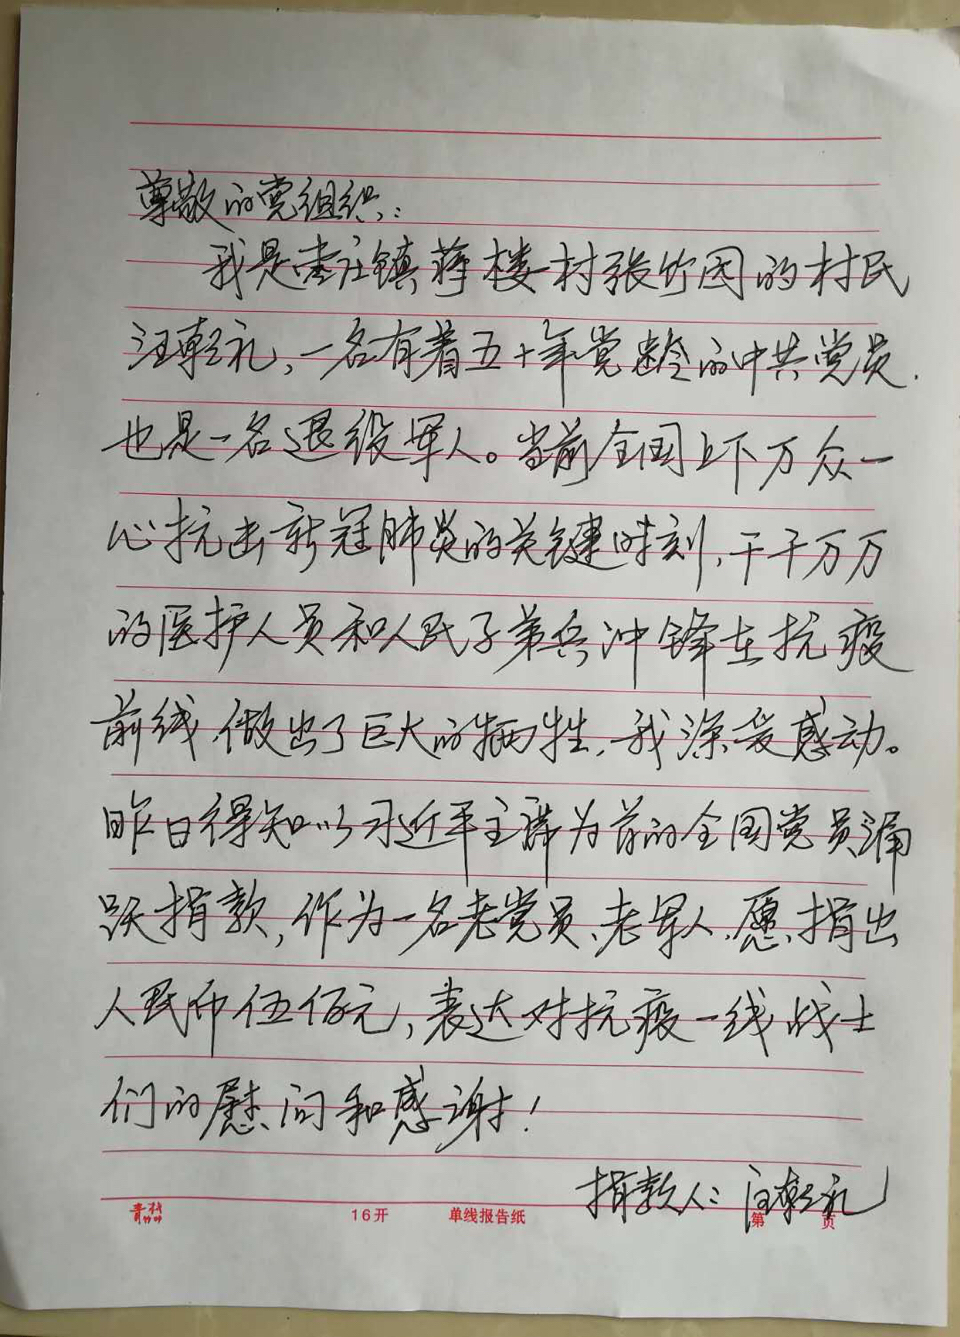 尊敬的党组织：
我是枣庄镇蒋楼村张竹园的村民
汪乾礼，一名有着五十年党龄的中共党员，
也是一名退役军人。当前全国上下万众一
心抗击新冠肺炎的关键时刻，千千万万
的医护人员和人民子弟兵冲锋在抗疫
前线，做出了巨大的牺牲，我深受感动。
昨日得知以习近平主席为首的全国党员踊
跃捐款，作为一名老党员、老军人，愿捐出
人民币伍佰元，表达对抗疫一线战士
们的慰问和感谢！
捐款人：汪乾礼
16开 单线报告纸 第 页